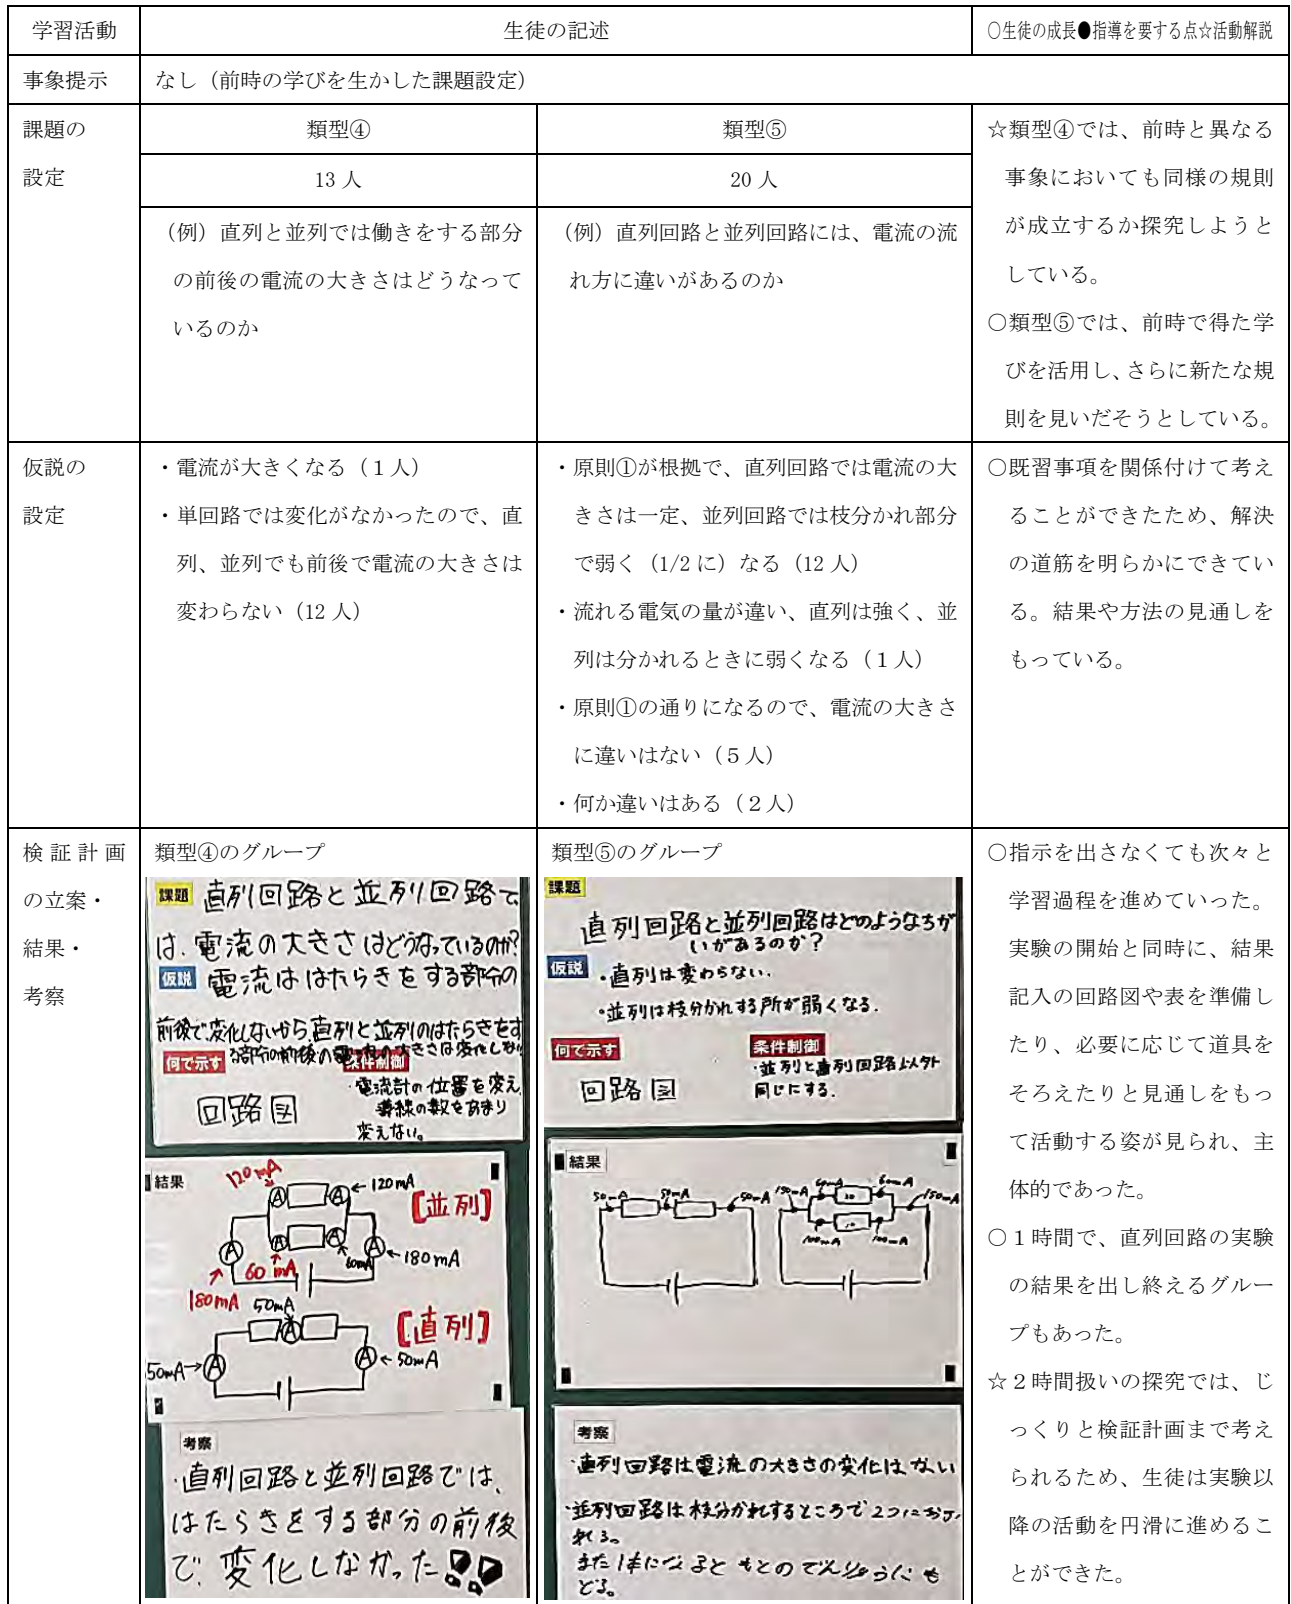 学習活動
生徒の記述
○生徒の成長●指導を要する点☆活動解説
事象提示
なし（前時の学びを生かした課題設定）
課題の
設定
類型④
類型⑤
13人
20人
（例）直列と並列では働きをする部分
の前後の電流の大きさはどうなって
いるのか
（例）直列回路と並列回路には、電流の流
れ方に違いがあるのか
☆類型④では、前時と異なる
事象においても同様の規則
が成立するか探究しようと
している。
○類型⑤では、前時で得た学
びを活用し、さらに新たな規
則を見いだそうとしている。
仮説の
設定
・電流が大きくなる（１人）
・単回路では変化がなかったので、直
列、並列でも前後で電流の大きさは
変わらない（12人）
・原則①が根拠で、直列回路では電流の大
きさは一定、並列回路では枝分かれ部分
で弱く（1/2に）なる（12人）
・流れる電気の量が違い、直列は強く、並
列は分かれるときに弱くなる（１人）
・原則①の通りになるので、電流の大きさ
に違いはない（５人）
・何か違いはある（２人）
○既習事項を関係付けて考え
ることができたため、解決
の道筋を明らかにできてい
る。結果や方法の見通しを
もっている。
検証計画
の立案・
結果・
考察
類型④のグループ
課題 直列回路と並列回路で
は、電流の大きさはどうなっているのか?
仮説 電流ははたらきをする部分の
前後で変化しないから、直列と並列のはたらきをす
る部分の前後の電流の大きさは変化しない
何で示す
条件制御
回路図
・電流計の位置を変え
導線の数をあまり
変えない。
結果
120mA
120mA
【並列】
60mA
60mA
180mA
180mA
50mA
【直列】
50mA
50mA
考察
・直列回路と並列回路では、
はたらきをする部分の前後
で変化しなかった!!
類型⑤のグループ
課題
直列回路と並列回路はどのようなちが
いがあるのか?
仮説 ・直列は変わらない.
・並列は枝分かれする所が弱くなる.
何で示す
条件制御
回路図
・並列と直列回路以外
同じにする.
結果
50mA 50mA 50mA 150mA 60mA 150mA
考察
・直列回路は電流の大きさの変化はない
・並列回路は枝分かれするところで2つに
れる。
また1本になるともとのでんりゅうにも
どる。
○指示を出さなくても次々と
学習過程を進めていった。
実験の開始と同時に、結果
記入の回路図や表を準備し
たり、必要に応じて道具を
そろえたりと見通しをもっ
て活動する姿が見られ、主
体的であった。
○１時間で、直列回路の実験
の結果を出し終えるグルー
プもあった。
☆２時間扱いの探究では、じ
っくりと検証計画まで考え
られるため、生徒は実験以
降の活動を円滑に進めるこ
とができた。